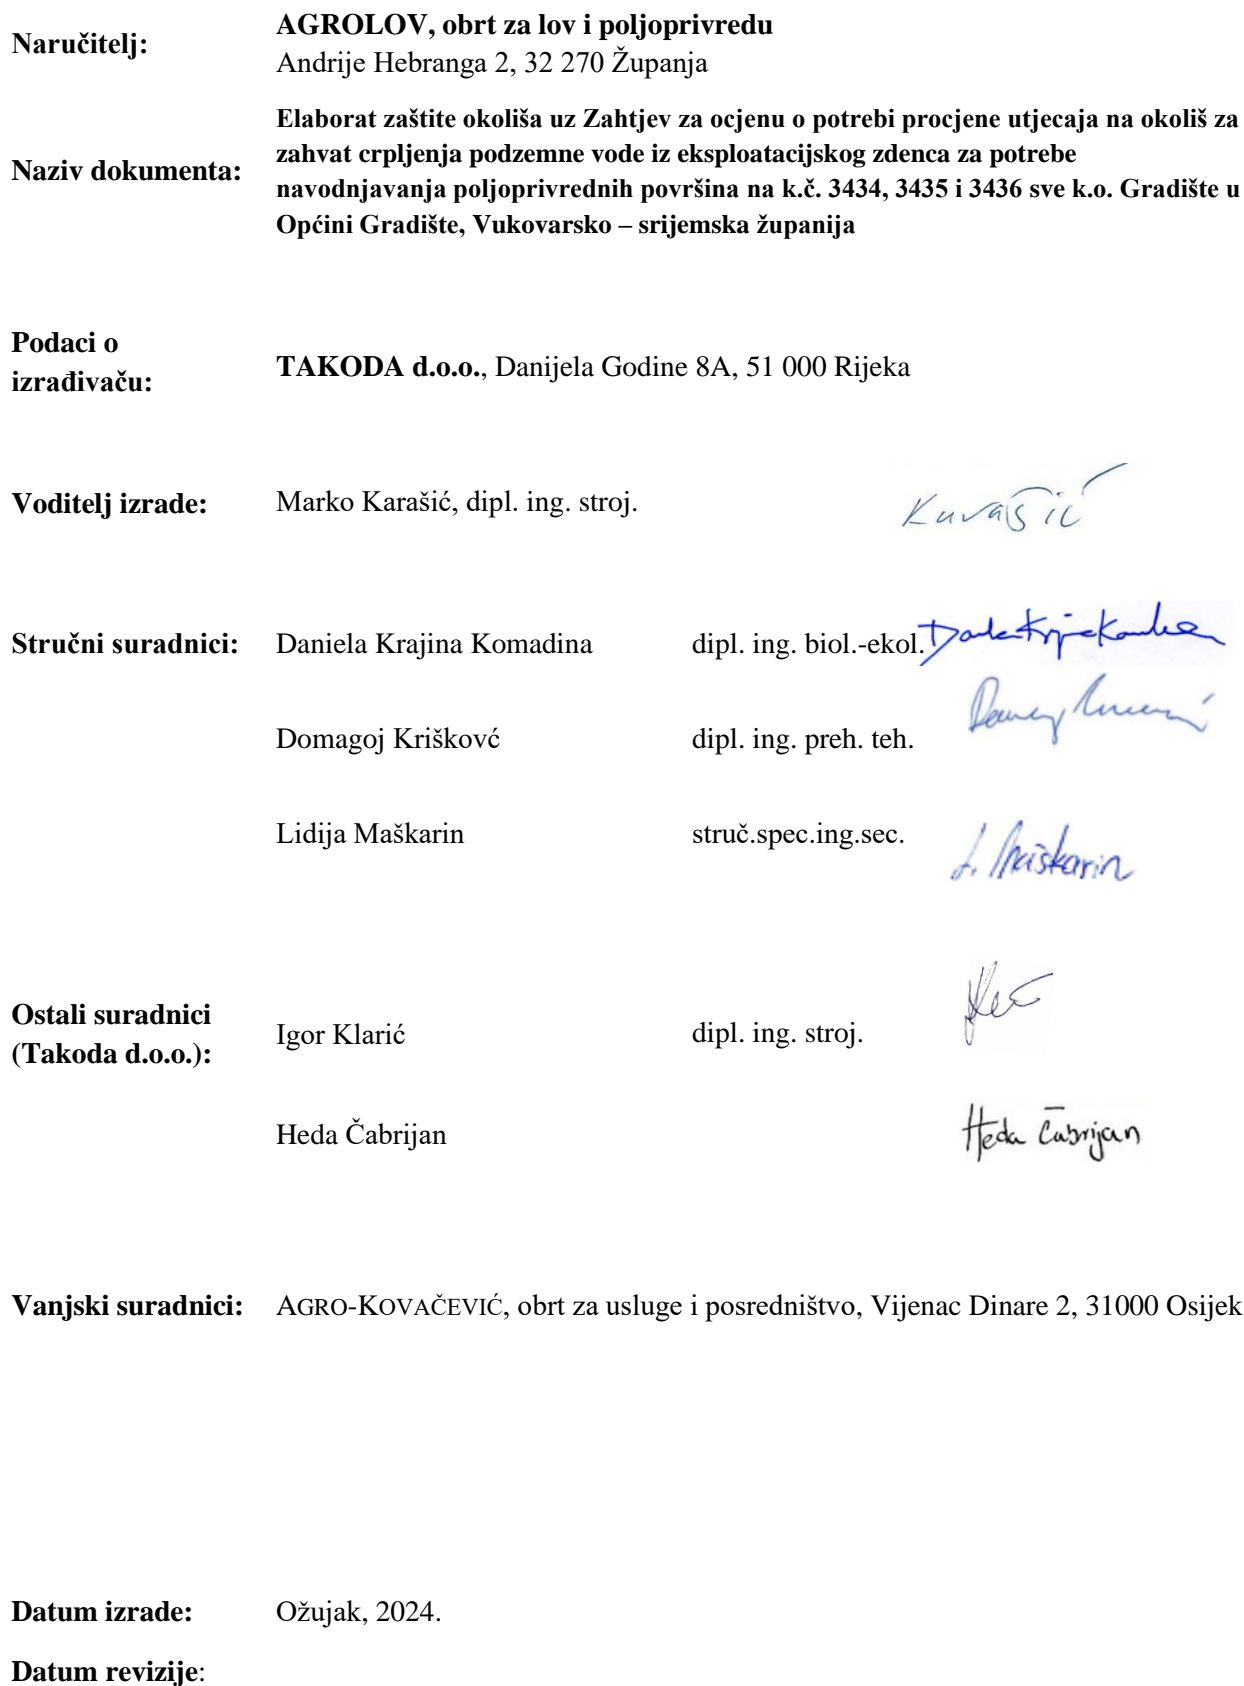 Naručitelj:
AGROLOV, obrt za lov i poljoprivredu
Andrije Hebranga 2, 32 270 Županja
Naziv dokumenta:
Elaborat zaštite okoliša uz Zahtjev za ocjenu o potrebi procjene utjecaja na okoliš za
zahvat crpljenja podzemne vode iz eksploatacijskog zdenca za potrebe
navodnjavanja poljoprivrednih površina na k.č. 3434, 3435 i 3436 sve k.o. Gradište u
Općini Gradište, Vukovarsko – srijemska županija
Podaci o
izrađivaču:
TAKODA d.o.o., Danijela Godine 8A, 51 000 Rijeka
Voditelj izrade: Marko Karašić, dipl. ing. stroj. Karašić
Stručni suradnici: Daniela Krajina Komadina dipl. ing. biol.-ekol.
Domagoj Kriškovć dipl. ing. preh. teh.
Lidija Maškarin struč.spec.ing.sec. L. Maškarin
Ostali suradnici
(Takoda d.o.o.):
Igor Klarić dipl. ing. stroj.
Heda Čabrijan Heda Čabrijan
Vanjski suradnici: AGRO-KOVAČEVIĆ, obrt za usluge i posredništvo, Vijenac Dinare 2, 31000 Osijek
Datum izrade: Ožujak, 2024.
Datum revizije: